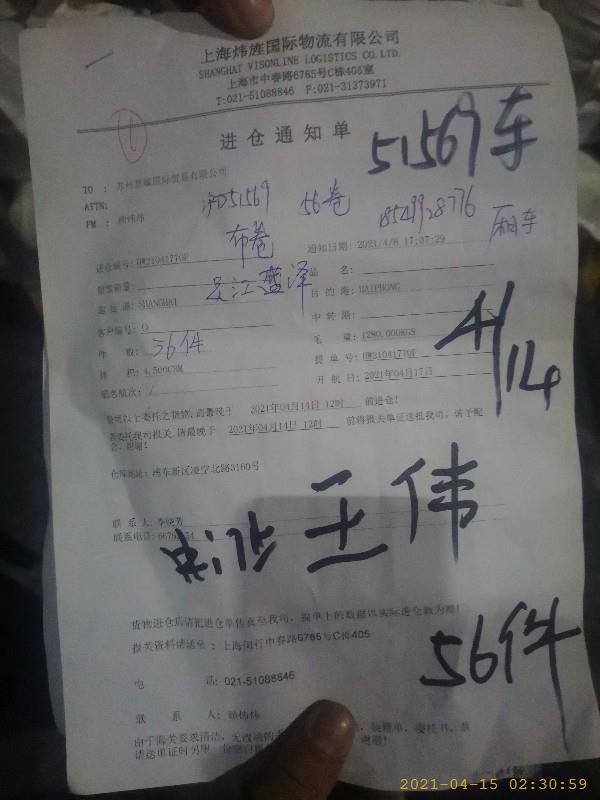 上海炜旌国际物流有限公司
SHANGHAI VISONLINE LOGISTICS CO.LTD.
上海市中春路6785号C栋405室
T:021-51088846 F:021-31373971
进仓通知单
51569车
TO : 苏州慧毓国际贸易有限公司
ATTN:
沪D51569 56卷 18549928776
FM : 顾炜炜
布卷 厢车
进仓编号: HW2104177OF 通知日期: 2021/4/8 17:37:29
吴江盛泽 品 名:
起运港: SHANGHAI 目的港: HAIPHONG
客户编号: 0 中转港:
4/14
件 数: 56件 毛 重: 1280.000KGS
体 积: 4.500CBM 提单号: HW2104177OF
船名航次: / 开航日: 2021年04月17日
2021年04月14日 12时 前进仓!
若委托我司报关,请最晚于 2021年04月14日 12时 前将报关单证送抵我司,请予配合,谢谢!
仓库地址: 浦东新区凌空北路3160号
王伟
联系人: 李晓芳
联系电话:
56件
货物进仓后请把进仓单传真至我司,提单上的数据以实际进仓数为准!
报关资料请送至: 上海闵行中春路6785号C栋405
电 话: 021-51088846
联 系 人: 顾炜炜
由于海关要求清洁,无改动的
装箱单,委托书,
请送单证时另
谢谢!
2021-04-15 02:30:59